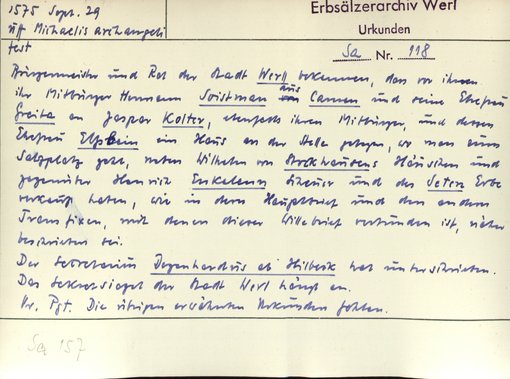 1575 Sept. 29
uff Michaelis archangeli
fest
Erbsälzerarchiv Werl
Urkunden
Sa Nr. 118
Bürgermeister und Rat der Stadt Werll bekennen, dass vor ihnen
ihr Mitbürger Hermann Soistman aus Camen und seine Ehefrau
Greita an Jaspar Kolter, ebenfalls ihren Mitbürger, und dessen
Ehefrau Elssbein ein Haus an der Stelle gelegen, wo man einen
Salzplatz geht, neben Wilhelm von Brockhausens Häuschen und
gegenüber Henrich Enkelenn Scheuer und des Erbe
verkauft haben, wie in dem Hauptbrief und den andern
Transfixen, mit denen dieser Willebrief verbunden ist, näher
beschrieben sei.
Der Secretarius Degenhardus ab Hilbeck hat unterschrieben.
Das Sekretsiegel der Stadt Werl hängt an.
Or. Pgt. Die übrigen erwähnten Urkunden fehlen.
Sa 157